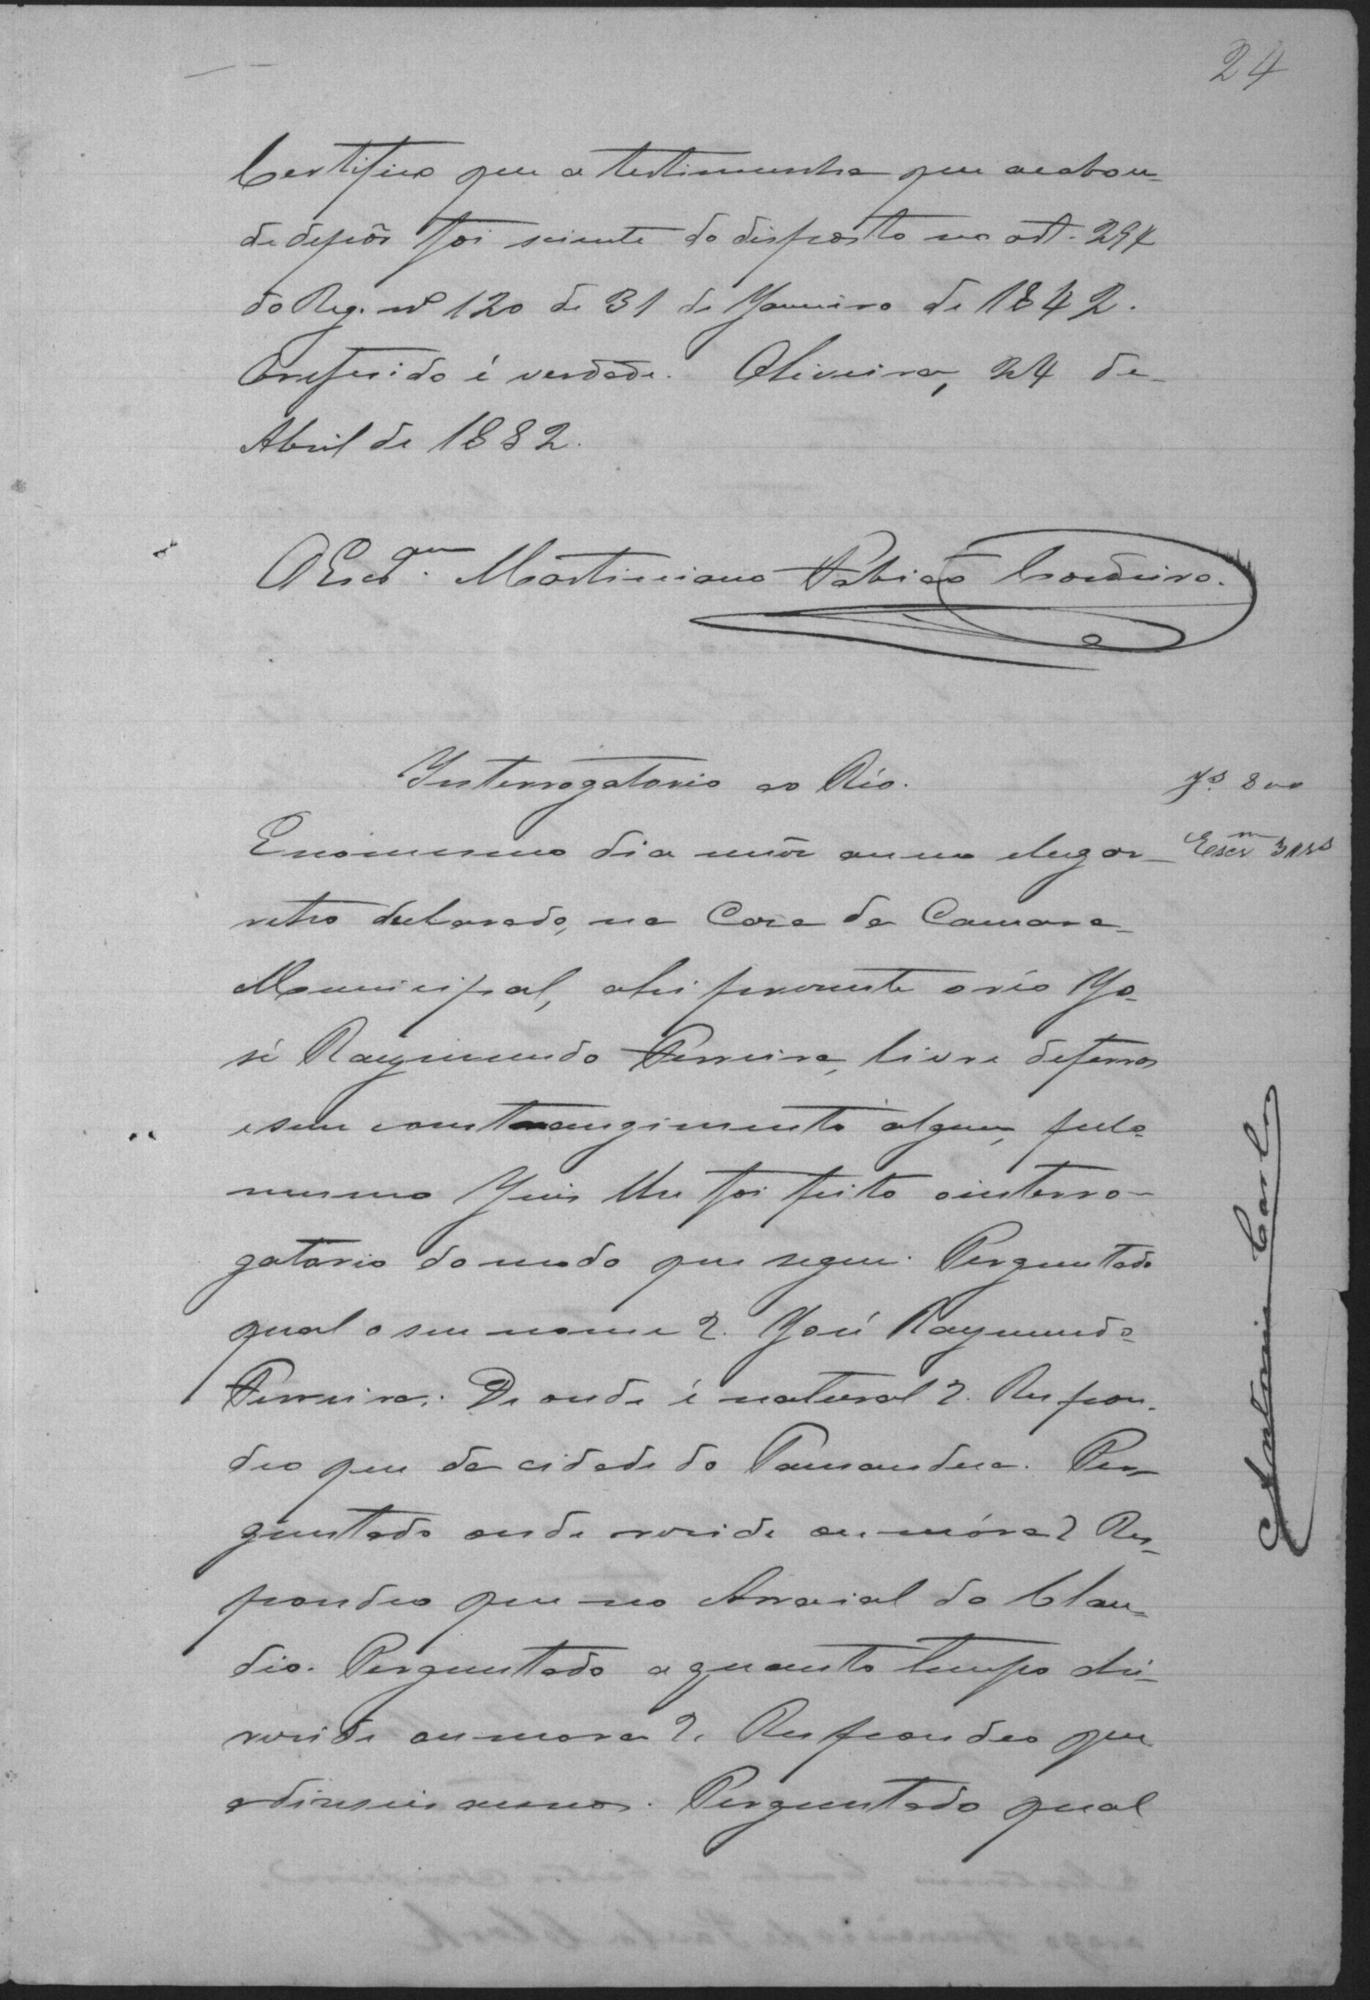 24
Certifico que a testimunha que acabou
de depôr foi sciente do disposto no art. 294
do Reg. nº 120 de 31 de Janeiro de 1842.
O referido é verdade. Oliveira, 24 de
Abril de 1882.
O Escr.am Martiniano Fabião Cordeiro.
Interrogatorio ao Réo.
Jz 800
E no mesmo dia mêz anno e lugar
Escm
retro declarado, na Caza da Camara
Municipal, ahi prezente o réo Jo-
sé Raymundo Ferreira, livre de ferros
e sem constrangimento algum, pelo
mesmo Juis lhe foi feito o interro-
gatorio do modo que segue. Perguntado
qual o seu nome? José Raymundo
Ferreira. De onde é natural? Respon-
deo que da cidade do Tamandua. Per-
guntado onde rezide ou móra? Res-
pondeo que no Arraial do Clau-
dio. Perguntado a quanto tempo ahi
rezide ou mora? Respondeo que
a dizeseis annos. Perguntado qual
Antonio Carlos